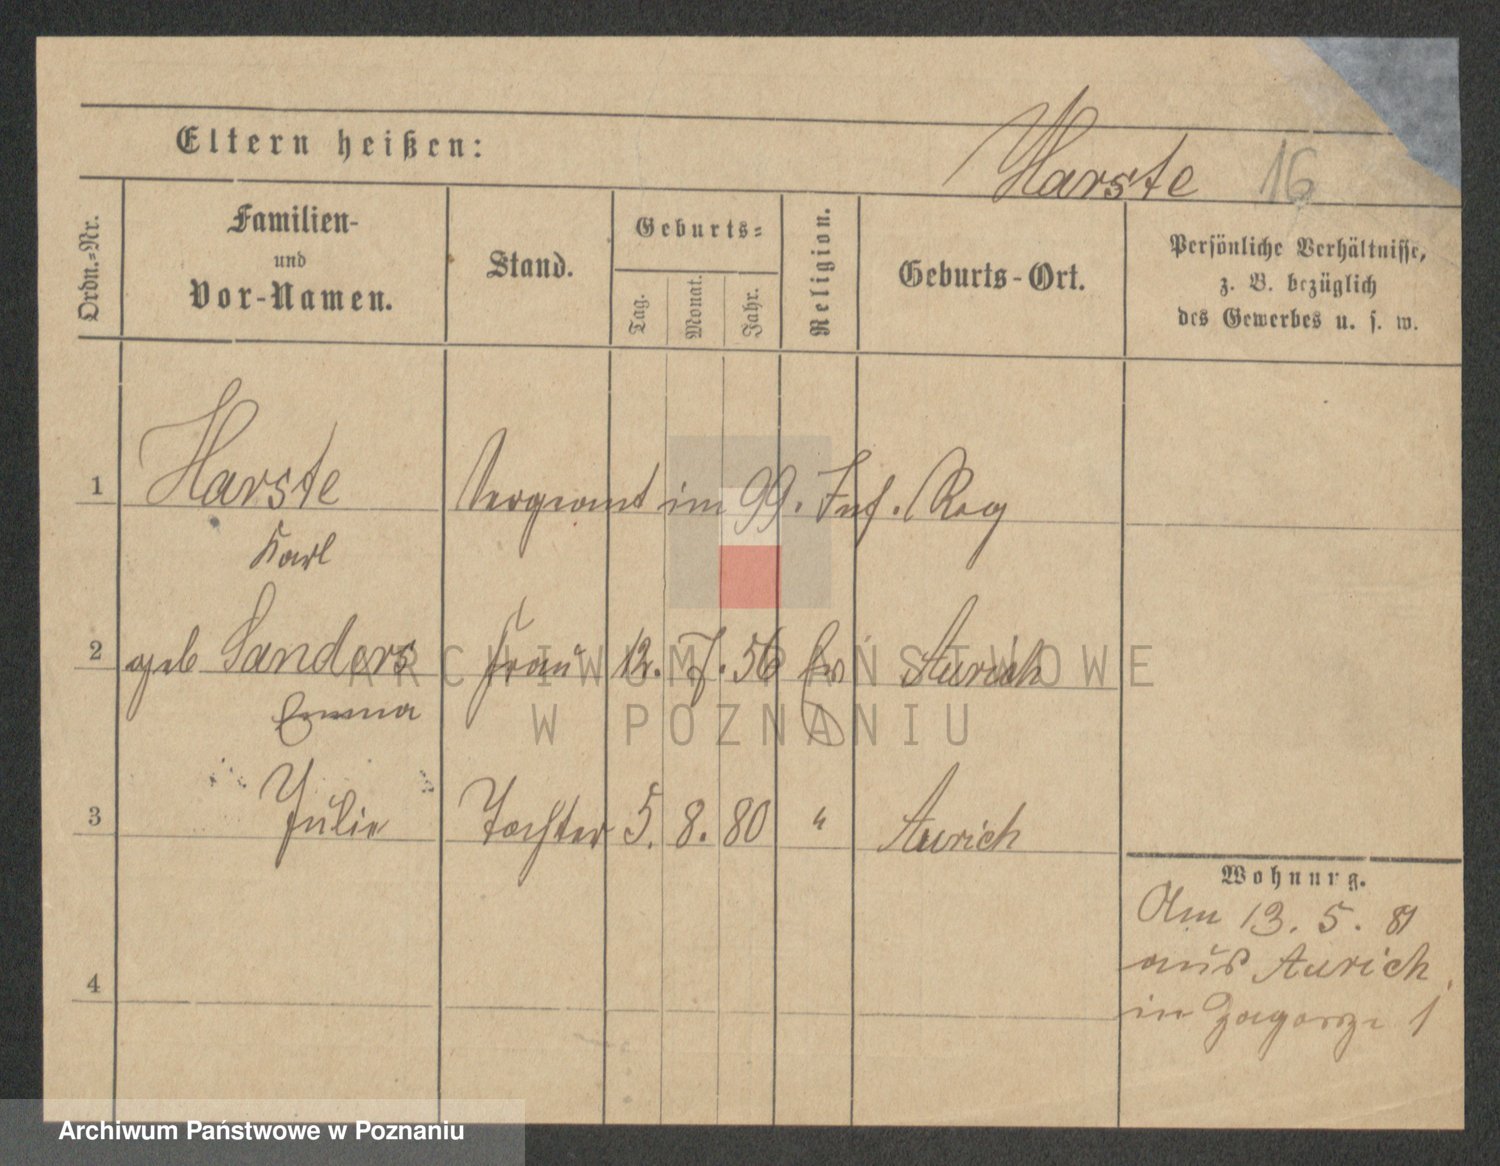 Eltern heißen:
Harste 16
Ordn.-Nr.
Familien-
und
Vor-Namen.
Stand.
Geburts-
Tag.
Monat.
Jahr.
Religion.
Geburts-Ort.
Persönliche Verhältnisse,
z. B. bezüglich
des Gewerbes u. s. w.
1 Harste Sergeant im 99. Inf. Reg
Karl
2 geb Sanders Frau 12. 7. 56 Ev Aurich
Emma
3 Julie Tochter 5. 8. 80 " Aurich
4
Wohnung.
Am 13. 5. 81
aus Aurich
in Zagorze 1
ARCHIWUM PAŃSTWOWE
W POZNANIU
Archiwum Państwowe w Poznaniu